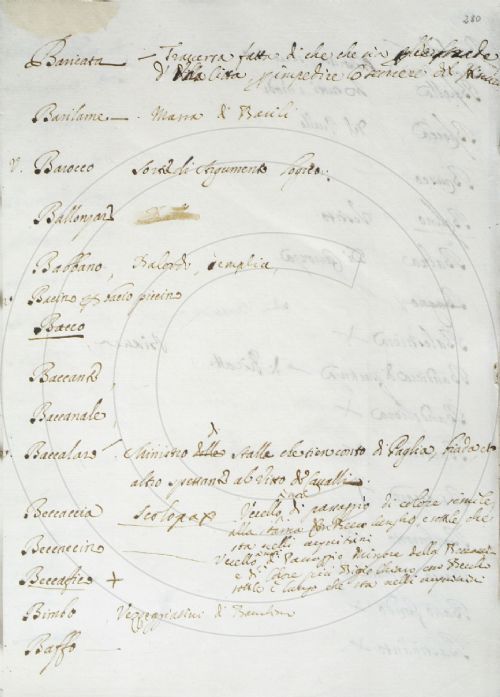 280
Baricata — Traversa fatta di che che sia
d' Una Citta p impedire
Barilame — Massa di Barili
V. Barocco Sorte di Argumento logico.
Ballonpar
Babbano, Balordo semplice
Bacino p bacio piccino
Bacco
Baccante,
Baccanale,
Baccalare Ministro delle Stalle che tien conto di Paglia, biada et
altro spettante al Vitto de Cavalli.
Beccaccia Scolopax Uccello di passaggio di colore simile
alla starna con Becco lungo, e sottile che
sta nelli acquitrini
Beccaccino Uccello di Passaggio minore della Beccaccia
e di colore più Bigio chiaro, con Becco
Beccafico + sottile e lungo che sta nelli acquitrini
Bimbo Vezzeggiativi di Bambino
Baffo